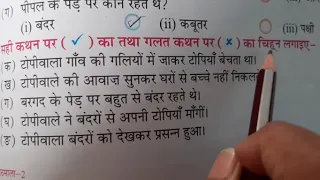 (ग) पीपल के पेड़ पर कौन रहते थे?
(i) बंदर (ii) कबूतर (iii) पक्षी
सही कथन पर ( ✓ ) का तथा गलत कथन पर ( × ) का चिह्न लगाइए-
(क) टोपीवाला गाँव की गलियों में जाकर टोपियाँ बेचता था।
(ख) टोपीवाले की आवाज़ सुनकर घरों से बच्चे नहीं निकल
(ग) बरगद के पेड़ पर बहुत से बंदर रहते थे।
(घ) टोपीवाले ने बंदरों से अपनी टोपियाँ माँगीं।
(ङ) टोपीवाला बंदरों को देखकर प्रसन्न हुआ।
माला-2